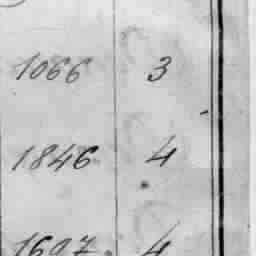 1066 3
1846 4
1697 4